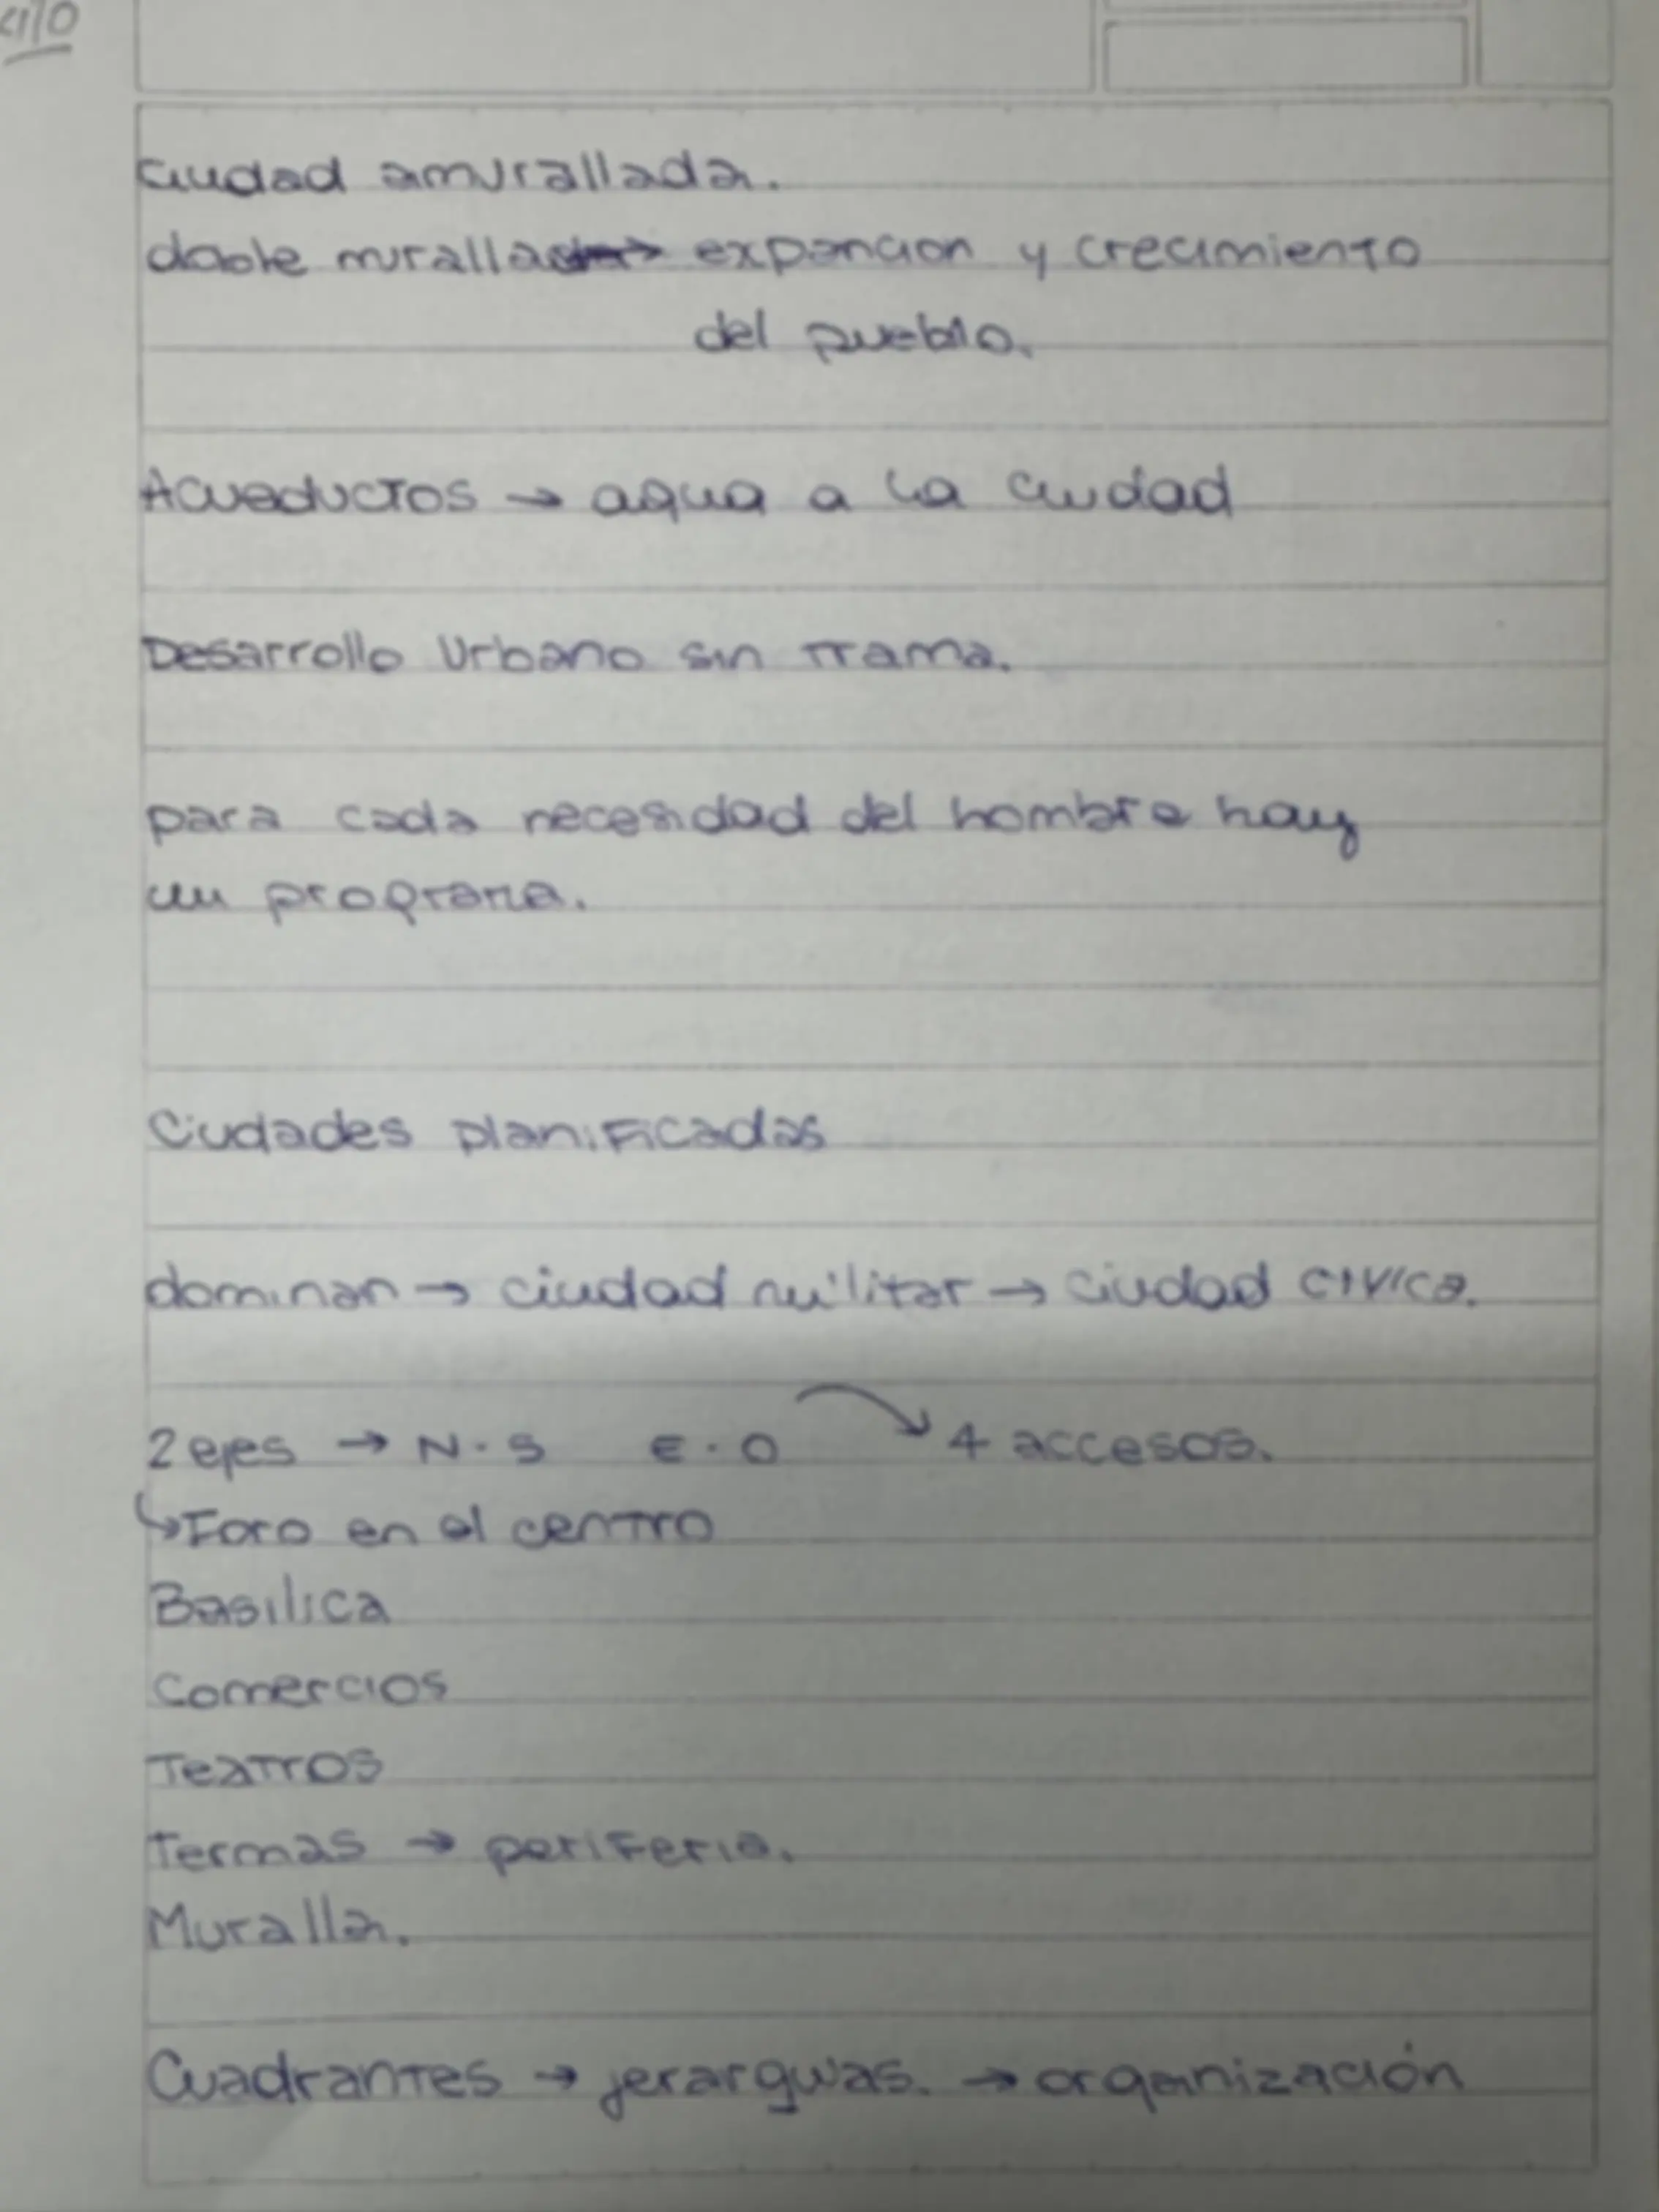 Ciudad amurallada.
doble muralla → expancion y crecimiento
del pueblo.
Acueductos → agua a la ciudad
Desarrollo Urbano sin trama.
para cada necesidad del hombre hay
un programa.
Ciudades planificadas
dominan → ciudad militar → ciudad civica.
2 ejes → N.S E.O → 4 accesos.
↳ Foro en el centro
Basilica
Comercios
Teatros
Termas → periferia.
Muralla.
Cuadrantes → jerarquias. → organización